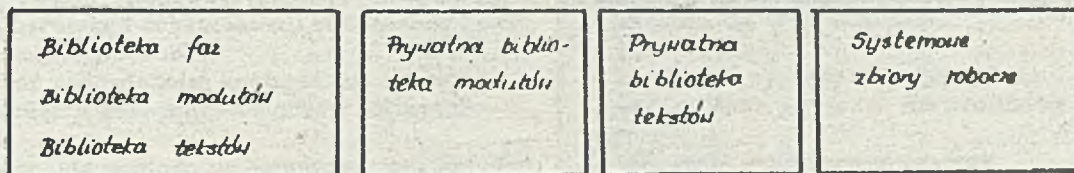 Biblioteka faz
Biblioteka modułów
Biblioteka tekstów
Prywatna biblio-
teka modułów
Prywatna
biblioteka
tekstów
Systemowe
zbiory robocze